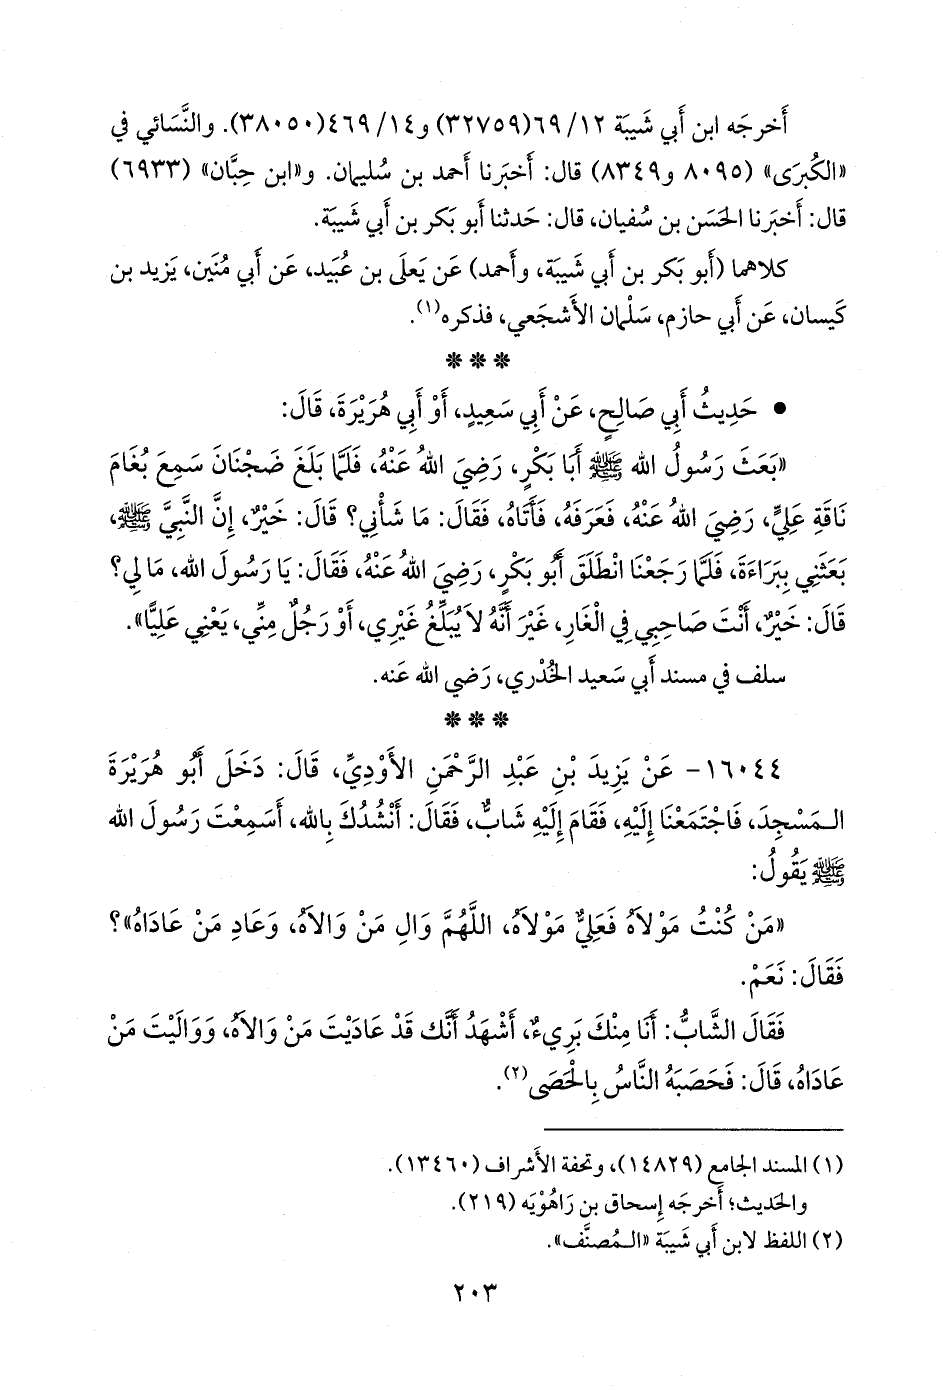 أَخرجَه ابن أَبي شَيبَة ١٢/ ٦٩(٣٢٧٥٩) و١٤/ ٤٦٩(٣٨٠٥٠). والنَّسَائي في
«الكُبرَى» (٨٠٩٥ و٨٣٤٩) قال: أَخبَرنا أَحمد بن سُليمان. و«ابن حِبَّان» (٦٩٣٣)
قال: أَخبَرنا الحَسَن بن سُفيان، قال: حَدثنا أَبو بَكر بن أَبي شَيبَة.
كلاهما (أَبو بَكر بن أَبي شَيبَة، وأَحمد) عَن يَعلَى بن عُبَيد، عَن أَبي مُنَين، يَزيد بن
كَيسان، عَن أَبي حازم، سَلْمان الأَشجَعي، فذكره(١).
***
• حَدِيثُ أَبِي صَالِحٍ، عَنْ أَبِي سَعِيدٍ، أَوْ أَبِي هُرَيْرَةَ، قَالَ:
«بَعَثَ رَسُولُ الله ﷺ أَبَا بَكْرٍ، رَضِيَ اللهُ عَنْهُ، فَلَمَّا بَلَغَ ضَجْنَانَ سَمِعَ بُغَامَ
نَاقَةِ عَلِيٍّ، رَضِيَ اللهُ عَنْهُ، فَعَرَفَهُ، فَأَتَاهُ، فَقَالَ: مَا شَأْنِي؟ قَالَ: خَيْرٌ، إِنَّ النَّبِيَّ ﷺ،
بَعَثَنِي بِبَرَاءَةَ، فَلَمَّا رَجَعْنَا انْطَلَقَ أَبُو بَكْرٍ، رَضِيَ اللهُ عَنْهُ، فَقَالَ: يَا رَسُولَ الله، مَا لِي؟
قَالَ: خَيْرٌ، أَنْتَ صَاحِبِي فِي الْغَارِ، غَيْرَ أَنَّهُ لاَ يُبَلِّغُ غَيْرِي، أَوْ رَجُلٌ مِنِّي، يَعْنِي عَلِيًّا».
سلف في مسند أَبي سَعيد الخُدْري، رَضي الله عَنه.
***
١٦٠٤٤- عَنْ يَزِيدَ بْنِ عَبْدِ الرَّحْمَنِ الأَوْدِيِّ، قَالَ: دَخَلَ أَبُو هُرَيْرَةَ
الـمَسْجِدَ، فَاجْتَمَعْنَا إِلَيْهِ، فَقَامَ إِلَيْهِ شَابٌّ، فَقَالَ: أَنْشُدُكَ بِالله، أَسَمِعْتَ رَسُولَ الله
ﷺ يَقُولُ:
«مَنْ كُنْتُ مَوْلاَهُ فَعَلِيٌّ مَوْلاَهُ، اللَّهُمَّ وَالِ مَنْ وَالاَهُ، وَعَادِ مَنْ عَادَاهُ»؟
فَقَالَ: نَعَمْ.
فَقَالَ الشَّابُّ: أَنَا مِنْكَ بَرِيءٌ، أَشْهَدُ أَنَّك قَدْ عَادَيْتَ مَنْ وَالاَهُ، وَوَالَيْتَ مَنْ
عَادَاهُ، قَالَ: فَحَصَبَهُ النَّاسُ بِالْحَصَى(٢).
(١) المسند الجامع (١٤٨٢٩)، وتحفة الأَشراف (١٣٤٦٠).
والحَديث؛ أَخرجَه إِسحاق بن رَاهُوْيَه (٢١٩).
(٢) اللفظ لابن أَبي شَيبَة «الـمُصنَّف».
٢٠٣